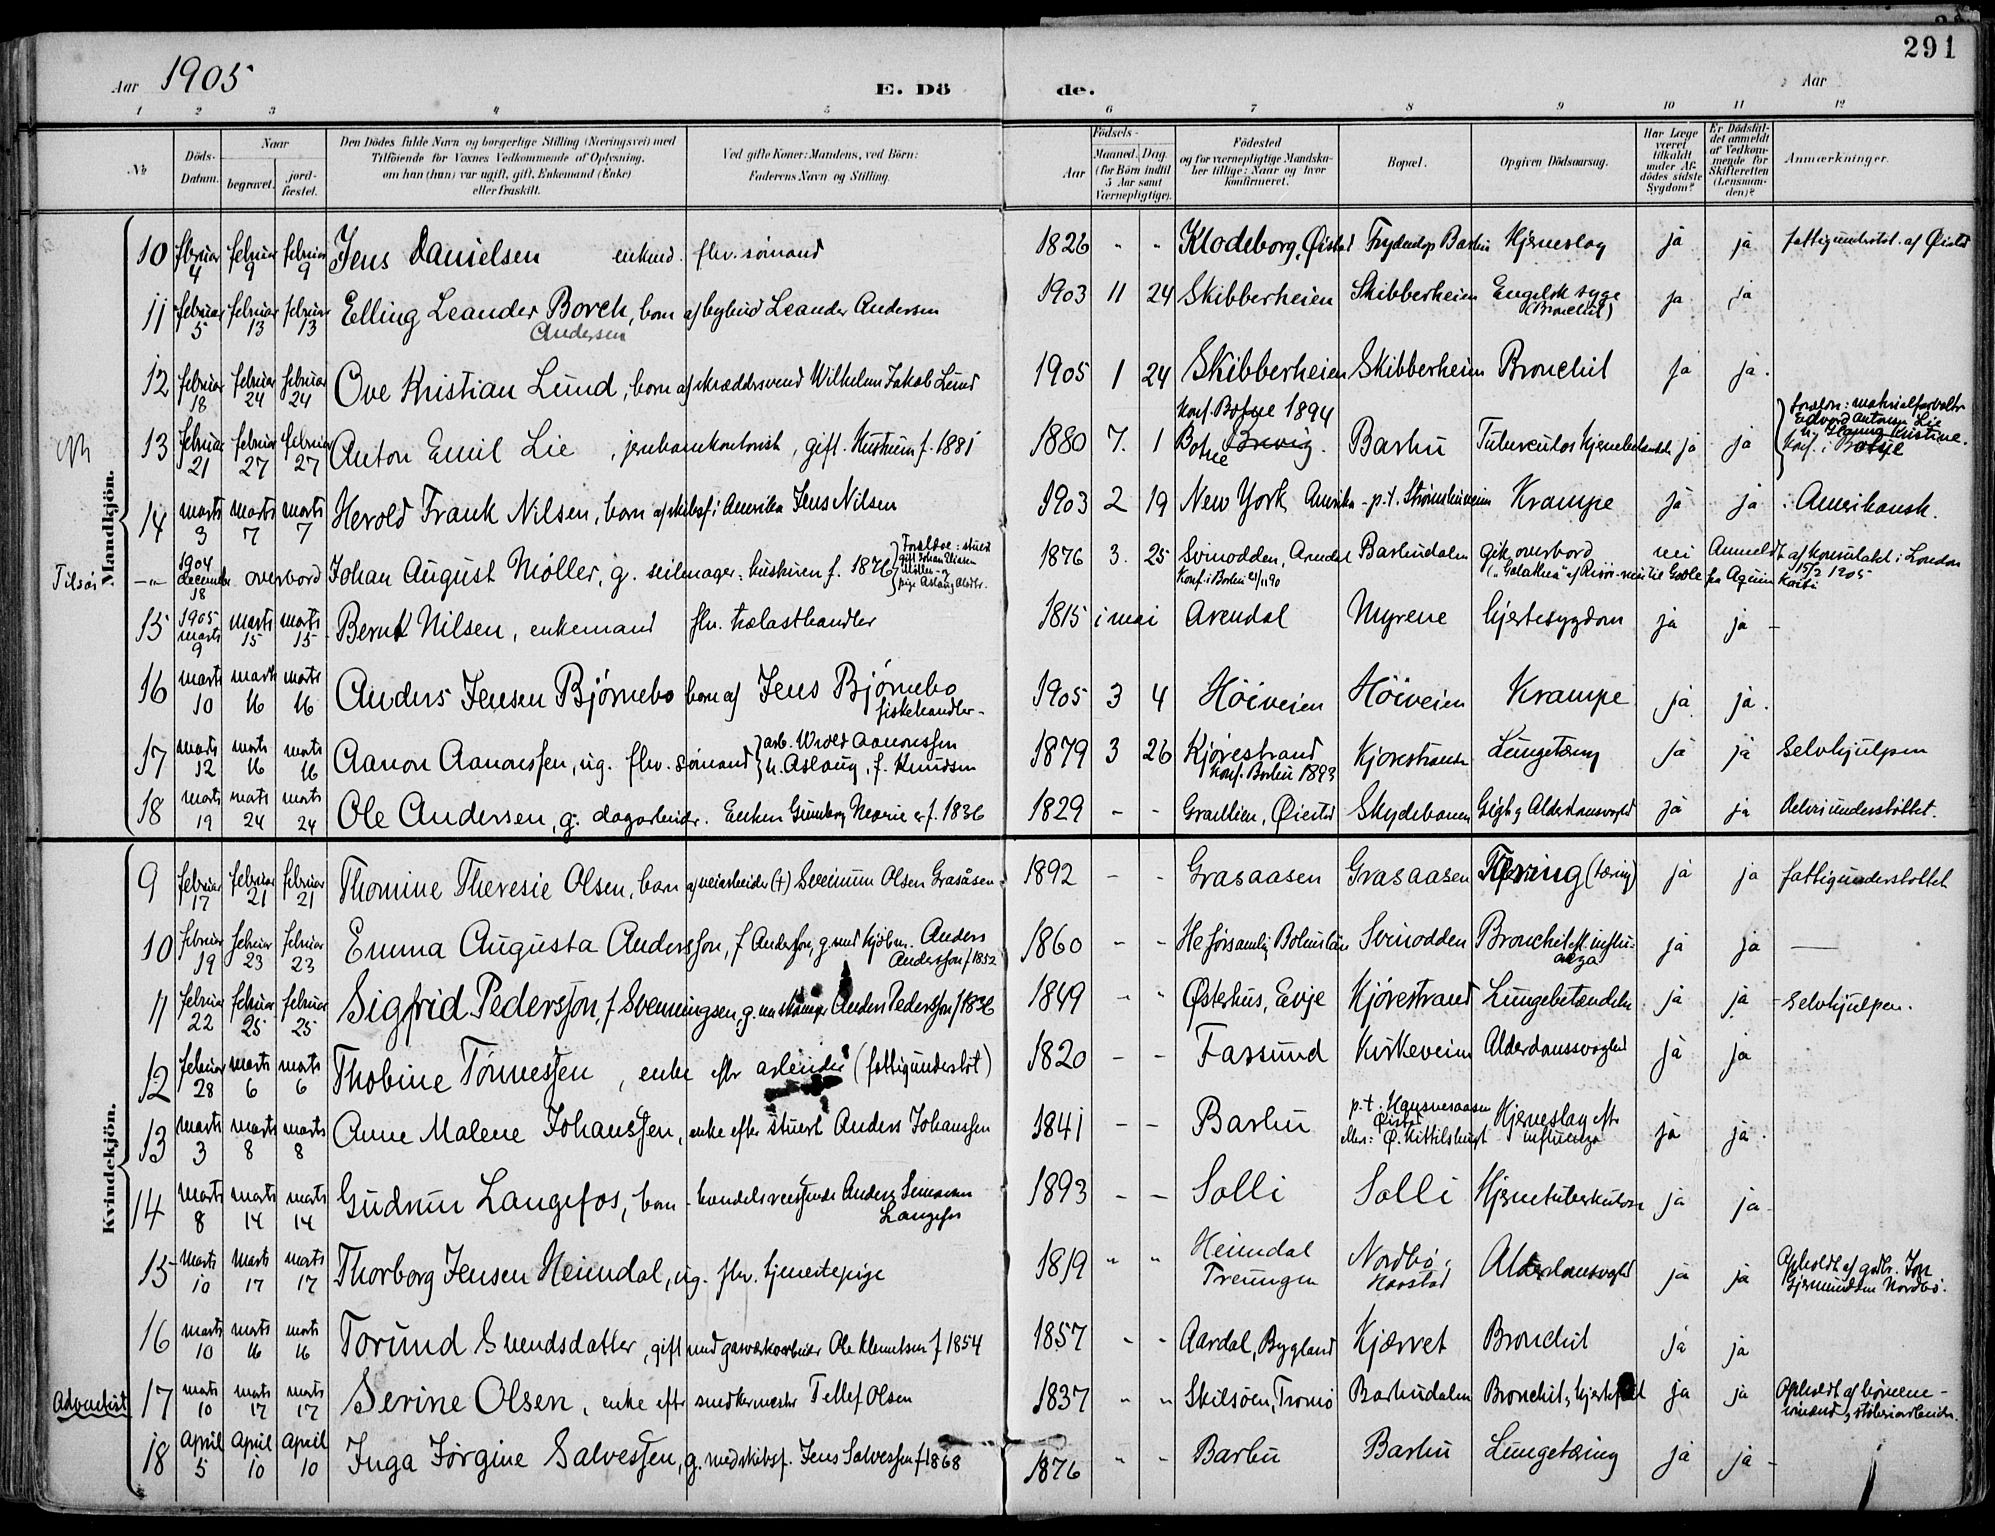 291
Aar 1905 E. Döde. Aar
1 2 3 4 5 6 7 8 9 10 11 12
No. Döds-Datum. Naar begravet. jordfæstet. Den Dödes fulde Navn og borgerlige Stilling (Næringsvei) med Tilföiende for Voxnes Vedkommende af Oplysning. om han (hun) var ugift, gift, Enkemand (Enke) eller fraskilt. Ved gifte Koner: Mandens, ved Börn: Faderens Navn og Stilling. Aar Födsels- Maaned. Dag. (for Börn indtil 5 Aar samt Værnepligtige). Födested og for værnepligtige Mandskaber tillige: Naar og hvor konfirmeret. Bopæl. Opgiven Dödsaarsag. Har Læge været tilkaldt under Afdödes sidste Sygdom? Er Dödsfaldet anmeldt af Vedkommende for Skifteretten (Lensmanden)? Anmærkninger.
Mandkjön.
10 februar 4 februar 9 februar 9 Jens Danielsen enkem. flv. sömand 1826 - - Klodeborg, Øiestad Barbu Hjerneslag ja ja fattigunderstöt. af Øiestad
11 februar 5 februar 13 februar 13 Elling Leander Borch, barn af bybud Leander Andersen 1903 11 24 Skibberheien Skibberheien Engelsk syge (Bronchit) ja ja
Andersen
12 februar 18 februar 24 februar 24 Ove Kristian Lund, barn af skræddersvend Wilhelm Jakob Lund 1905 1 24 Skibberheien Skibberheien Bronchit ja ja.
Konf. Botne 1894
13 februar 21 februar 27 februar 27 Anton Emil Lie, jernbanekontorist, gift. Hustruen f. 1881 1880 7. 1 Botne Brevig. Barbu Tuberculos Hjernebetændelse ja ja Foræld.: materialforvalter Edvard Antonsen Lie Kristine. Konf. i Botne
14 marts 3 marts 7 marts 7 Herold Frank Nilsen, barn af skibsf. i Amerika Jens Nilsen 1903 2 19 New York, Amerika - p.t. Krampe ja ja. Amerikansk.
Tilsös
-"- 1904 december 18 overbord Johan August Möller, g. seilmager. hustruen f. 1876 Forældre: stuert Möller og pige Aslaug 1876 3. 25 Svinodden, Arendal Konf. i Barbu 21/11 90 Barbudalen gik overbord ("Galathea" af Risör nei Anmeldt af Konsulatet i London 15/2 1905
15 1905 marts 9 marts 15 marts 15 Bernt Nilsen, enkemand flv. trælasthandler 1815 i mai Arendal Myrene hjertesygdom ja ja -
16 marts 10 marts 16 marts 16 Anders Jensen Bjørnebo barn af Jens Bjørnebo fiskehandler - 1905 3 4 Höiveien Höiveien Krampe ja ja.
17 marts 12 marts 16 marts 16 Aanon Aanonssen, ug. flv. sömand arb. Aanonssen u. Aslaug, f. Knudsen 1879 3 26 Kjørestrand Konf. Barbu 1893 Kjørestrand Lungetæring ja ja Selvhjulpen
18 marts 19 marts 24 marts 24 Ole Andersen, g. dagarbeider. Enken Gunborg Marie er f. 1836 1829 - - Øiestad Skydebanen Gigt og Alderdomssvaghed ja ja Delvis understöttet.
Kvindekjön.
9 februar 17 februar 21 februar 21 Thomine Theresie Olsen, barn af veiarbeider (+) Olsen Grasåsen 1892 - - Grasaasen Grasaasen Tæring (tæring) ja ja fattigunderstöttet
10 februar 19 februar 23 februar 23 Emma Augusta Andersson, f Andersson, g. med kjöbm. Anders Andersson f 1852 1860 - - Bohuslän Svinodden Bronchit eft. influenza ja ja -
11 februar 22 februar 25 februar 25 Sigfrid Pedersson, f Svenningsen, g. m Anders Pedersson f 1836 1849 - - Østerhus, Evje Kjørestrand Lungebetændelse ja ja - Selvhjulpen.
12 februar 28 marts 6 marts 6 Thobine Tönnessen, enke eftr arbeider (fattigunderstöt) 1820 - - Farsund Kirkeveien Alderdomssvaghed ja ja
13 marts 3 marts 8 marts 8 Anne Malene Johanssen, enke efter stuert Anders Johanssen 1841 - - Barbu p.t. Øiestad ellers: Ø. Kittilsbugt Hjerneslag eftr influenza ja ja.
14 marts 8 marts 14 marts 14 Gudrun Langefos, barn - handelsreisende Anders Langefos 1893 - - Solli Solli Hjernetuberkulose ja ja -
15 marts 10 marts 17 marts 17 Thorborg Jensen Heimdal, ug. flv. tjenestepige 1819 " " Heimdal Treungen Nordbö, Alderdomssvaghed ja ja Opholdt af gdbr. Jon Gjermundsen Nordbö.
16 marts 10 marts 16 marts 16 Torund Svendsdatter, gift med gasværksarbeider Ole Klemetsen f 1854 1857 - - Aardal, Bygland Kjærret Bronchit ja ja
Adventist
17 marts 10 marts 17 marts 17 Serine Olsen, enke eftr snedkermester Tellef Olsen 1837 " " Skilsöen, Tromö Barbudalen Bronchit, hjertefeil ja ja Opholdt af börnene -
18 april 5 april 10 april 10 Inga Jørgine Salvessen, g. med skibsf. Jens Salvessen f 1868 1876 " - Barbu Barbu Lungetæring ja ja -